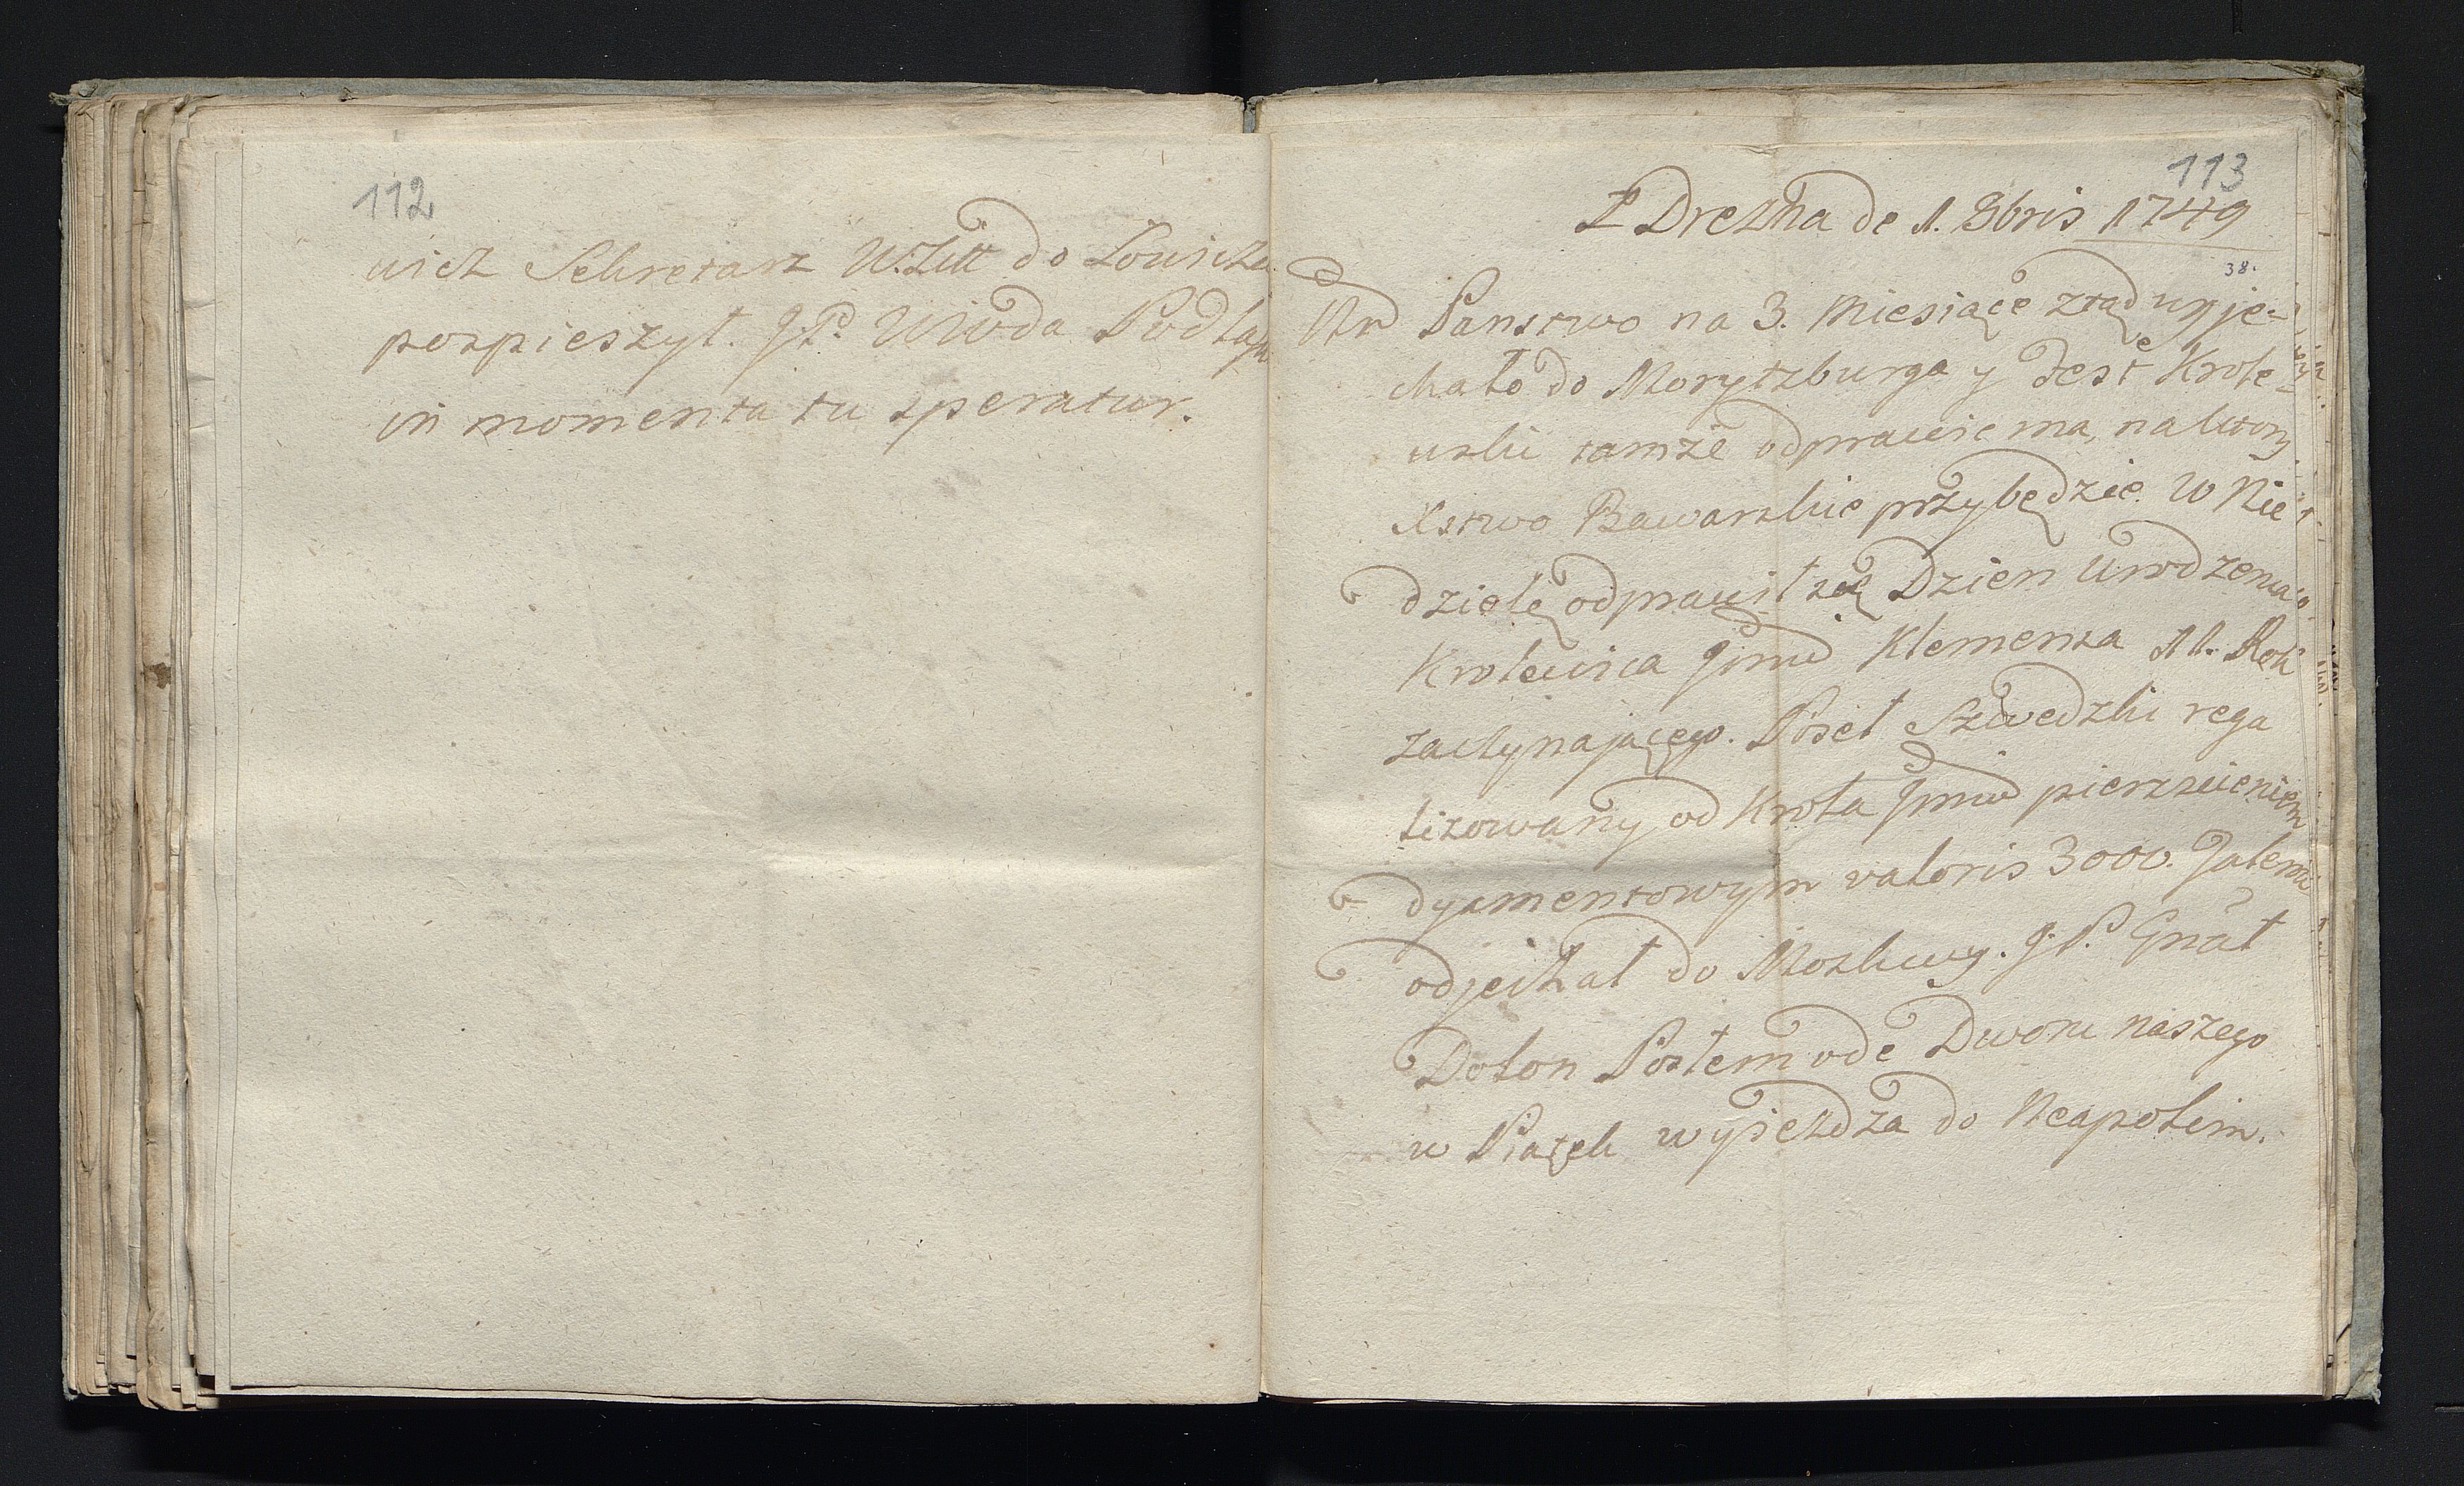 112
wicz Sekretarz W: Litt do Łowicza
pospieszył. J:P. WWoda Podlask
in momenta tu speratur.
113
Z Drezna de 1. 8bris 1749
38.
Nro Panstwo na 3. Miesiące ztąd wyje-
chało do Morytzburga y Fest Krole-
wski tamże odprawic ma, na ktory
Xstwo Bawarskie przybędzie. W Nie
dzielę odprawił się Dzien Urodzenia
Krolewica Jmci Klemensa 11. Rok
zaczynającego. Poseł Szwedzki rega
lizowany od Krola Jmci pierscieniem
dyamentowym valoris 3000. Talerow
odjechał do Moskwy. J:P. Gnał
Dolon Posłem ode Dworu naszego
w Piątek wyjezdza do Neapolim.